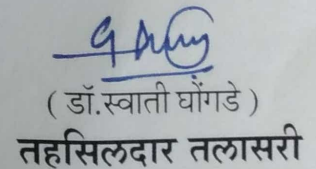 ( डॉ.स्वाती घोंगडे )
तहसिलदार तलासरी